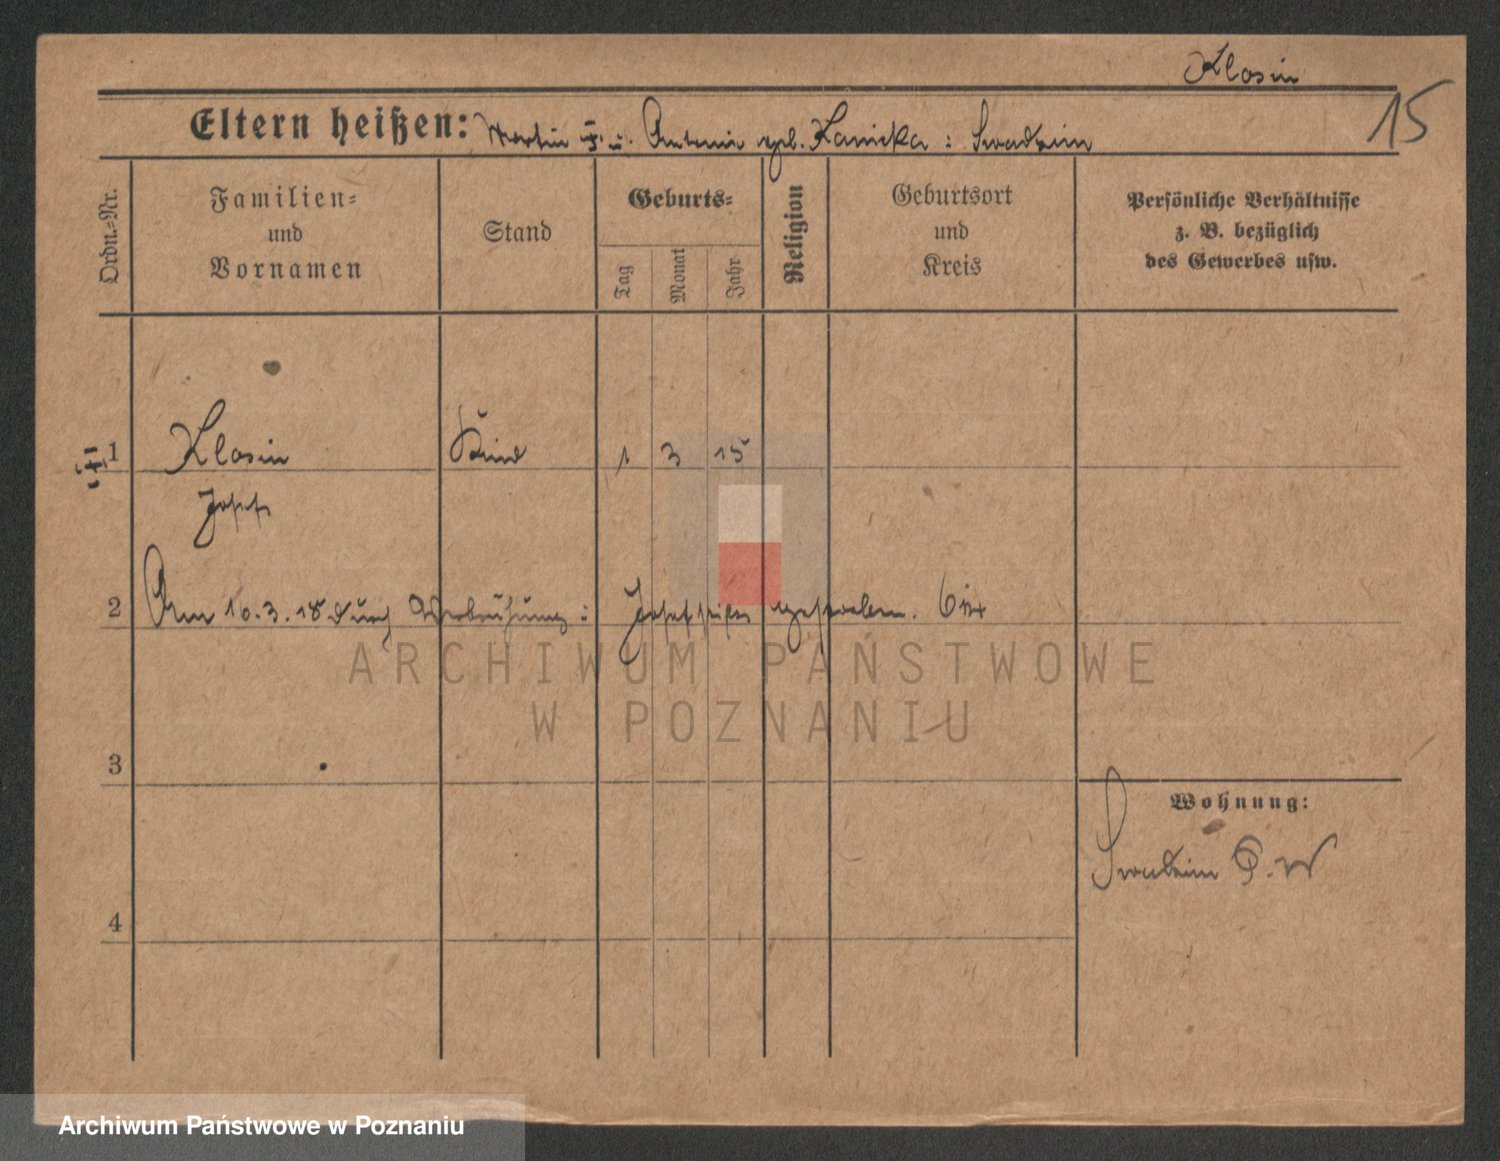 Klosin
15
Eltern heißen: Martin u. Antonie geb. Kanicka : Swadzim
Ordn.-Nr.
Familien-
und
Vornamen
Stand
Geburts-
Tag
Monat
Jahr
Religion
Geburtsort
und
Kreis
Persönliche Verhältnisse
z. B. bezüglich
des Gewerbes usw.
1 Klosin Kind 1 3 15
Josef
2 Am 10.3.18 durch Verbrühung : Josef hier gestorben.
ARCHIWUM PAŃSTWOWE
W POZNANIU
3
Wohnung:
Swadzim
4
Archiwum Państwowe w Poznaniu